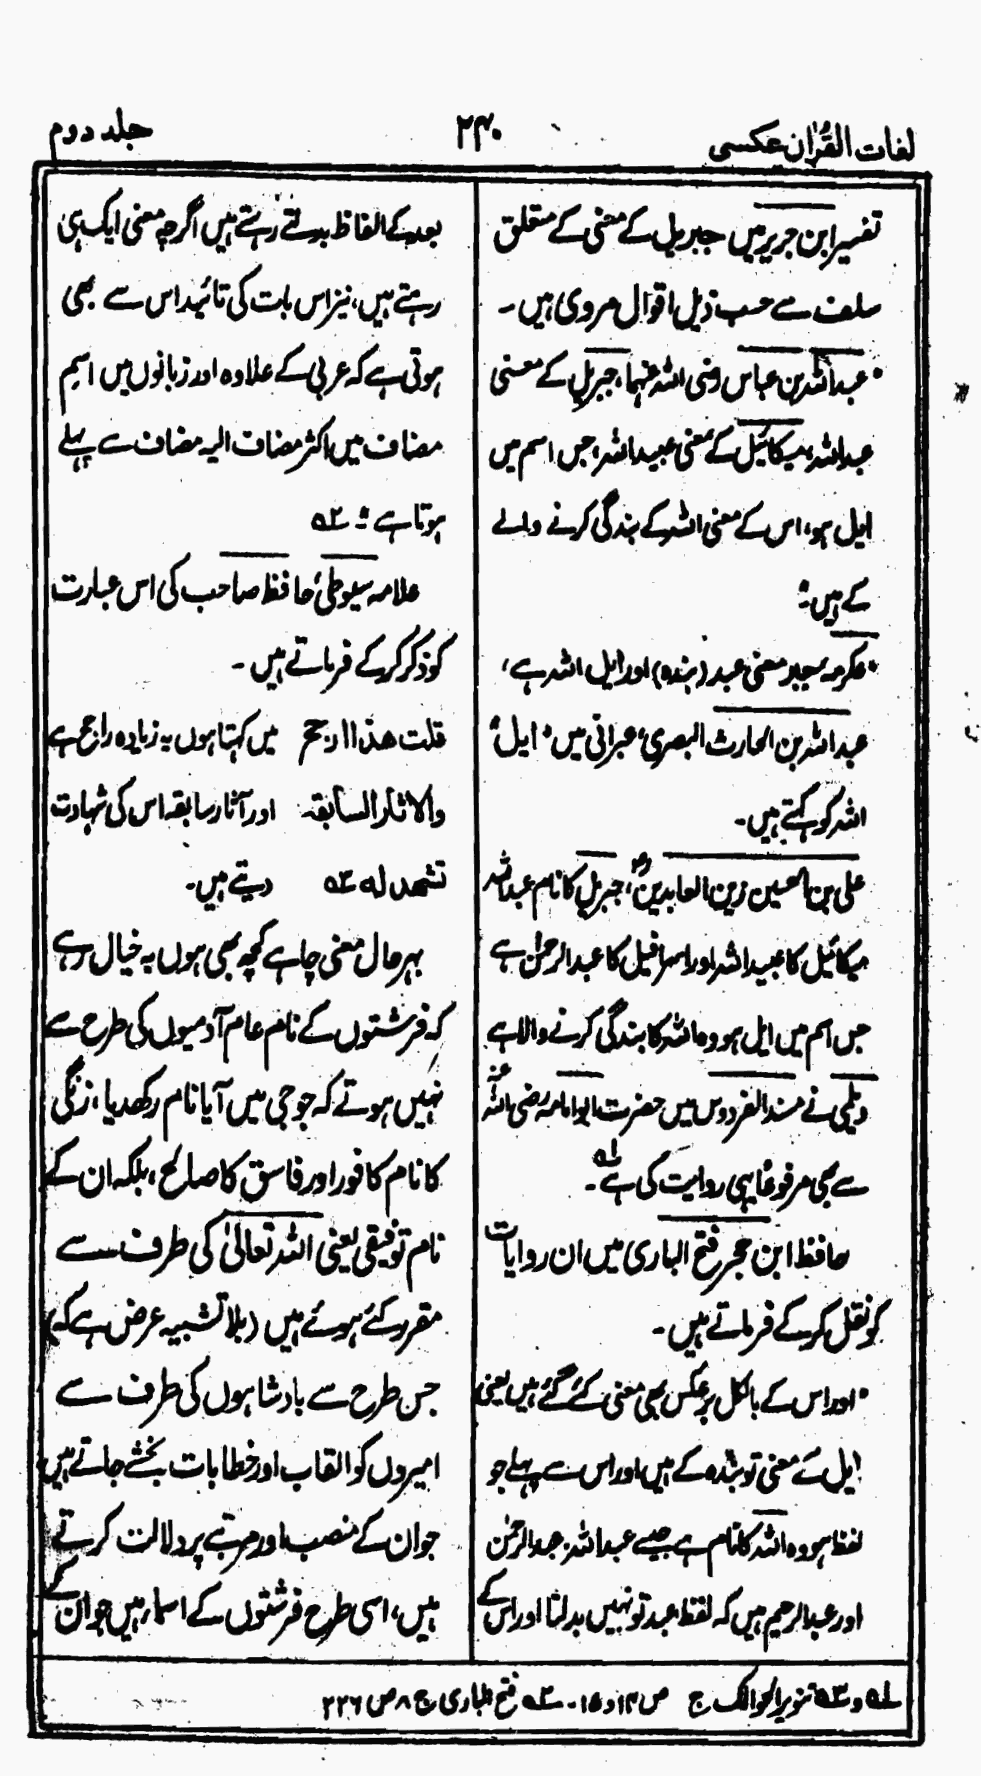 لغات القرآن عکسی
۲۴۰
جلد دوم
تفسیر ابن جریر میں جبریل کے معنی کے متعلق
سلف سے حسب ذیل اقوال مروی ہیں۔
عبداللہ بن عباس رضی اللہ عنہما، جبریل کے معنی
عبداللہ، میکائیل کے معنی عبیداللہ، جس اسم میں
ایل ہو، اس کے معنی اللہ کے بندگی کرنے والے
کے ہیں۔
عکرمہ، جبر معنی عبد (بندہ) اور ایل اللہ ہے،
عبداللہ بن الحارث البصری، عبرانی میں "ایل"
اللہ کو کہتے ہیں۔
علی بن الحسین زین العابدین، جبریل کا نام عبداللہ
میکائیل کا عبیداللہ اور اسرافیل کا عبدالرحمٰن ہے
جس اسم میں ایل ہو وہ اللہ کا بندگی کرنے والا ہے
دیلمی نے مسند الفردوس میں حضرت ابوامامہ رضی اللہ عنہ
سے بھی مرفوعًا یہی روایت کی ہے لہ۔
حافظ ابن حجر فتح الباری میں ان روایات
کو نقل کر کے فرماتے ہیں۔
"اور اس کے بالکل برعکس بھی معنی کئے گئے ہیں یعنی
ایل کے معنی تو بندہ کے ہیں اور اس سے پہلے جو
لفظ ہو وہ اللہ کا نام ہے جیسے عبداللہ، عبدالرحمٰن
اور عبدالرحیم ہیں کہ لفظ عبد تو نہیں بدلتا اور اس کے
بعد کے الفاظ بدلتے رہتے ہیں اگرچہ معنی ایک ہی
رہتے ہیں، نیز اس بات کی تائید اس سے بھی
ہوتی ہے کہ عربی کے علاوہ اور زبانوں میں اسم
مضاف میں اکثر مضاف الیہ مضاف سے پہلے
ہوتا ہے" ۲ہ
علامہ سیوطی حافظ صاحب کی اس عبارت
کو ذکر کر کے فرماتے ہیں۔
قلت هذا ارجح میں کہتا ہوں یہ زیادہ راجح ہے
والاثار السابقة اور آثار سابقہ اس کی شہادت
تشهد له ۳ہ دیتے ہیں۔
بہر حال معنی چاہے کچھ بھی ہوں یہ خیال رہے
کہ فرشتوں کے نام عام آدمیوں کی طرح سے
نہیں ہوتے کہ جو جی میں آیا نام رکھدیا، زنگی
کا نام کافور اور فاسق کا صالح، بلکہ ان کے
نام توفیقی یعنی اللہ تعالیٰ کی طرف سے
مقرر کئے ہوئے ہیں (بلا تشبیہ عرض ہے کہ)
جس طرح سے بادشاہوں کی طرف سے
امیروں کو القاب اور خطابات بخشے جاتے ہیں
جو ان کے منصب اور مرتبے پر دلالت کرتے
ہیں، اسی طرح فرشتوں کے اسماء ہیں جو ان کے
لہ و ۳ہ تنویر الحوالک ج ص ۱۴ و ۱۵۔ ۲ہ فتح الباری ج ۸ ص ۲۲۶